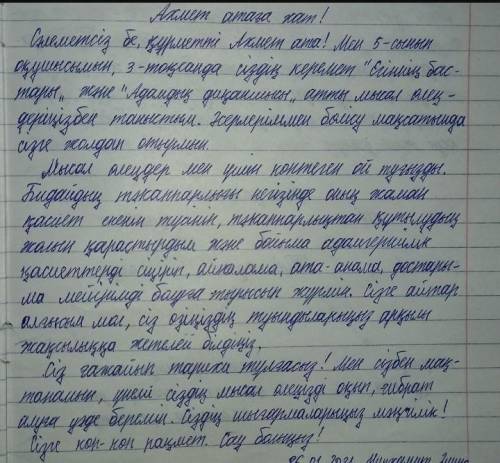 Ахмет атаға хат!
Сәлеметсіз бе, құрметті Ахмет ата! Мен 5-сынып
оқушысымын, 3-тоқсанда сіздің керемет "Егіннің бас-
тары„ және "Адамдық диқаншысы„ атты мысал өлең-
деріңізбен таныстым. Әсерлеріммен бөлісу мақсатында
сізге жолдап отырмын.
Мысал өлеңдер мен үшін көптеген ой туғызды.
Бидайдың тәкаппарлығы негізінде оның жаман
қасиет екенін түсініп, тәкаппарлықтан құтылудың
жолын қарастырдым және бойыма адамгершілік
қасиеттерді сіңіріп, айналама, ата-анама, достары-
ма мейірімді болуға тырысып жүрмін. Сізге айтар
алғысым мол, сіз өзіңіздің туындыларыңыз арқылы
жақсылыққа жетелей білдіңіз.
Сіз ғажайып тарихи тұлғасыз! Мен сізбен мақ-
танамын, үнемі сіздің мысал өлеңізді оқып, ғибрат
алуға уәде беремін. Сіздің шығармаларыңыз мәңгілік!
Сізге көп-көп рақмет. Сау болыңыз!